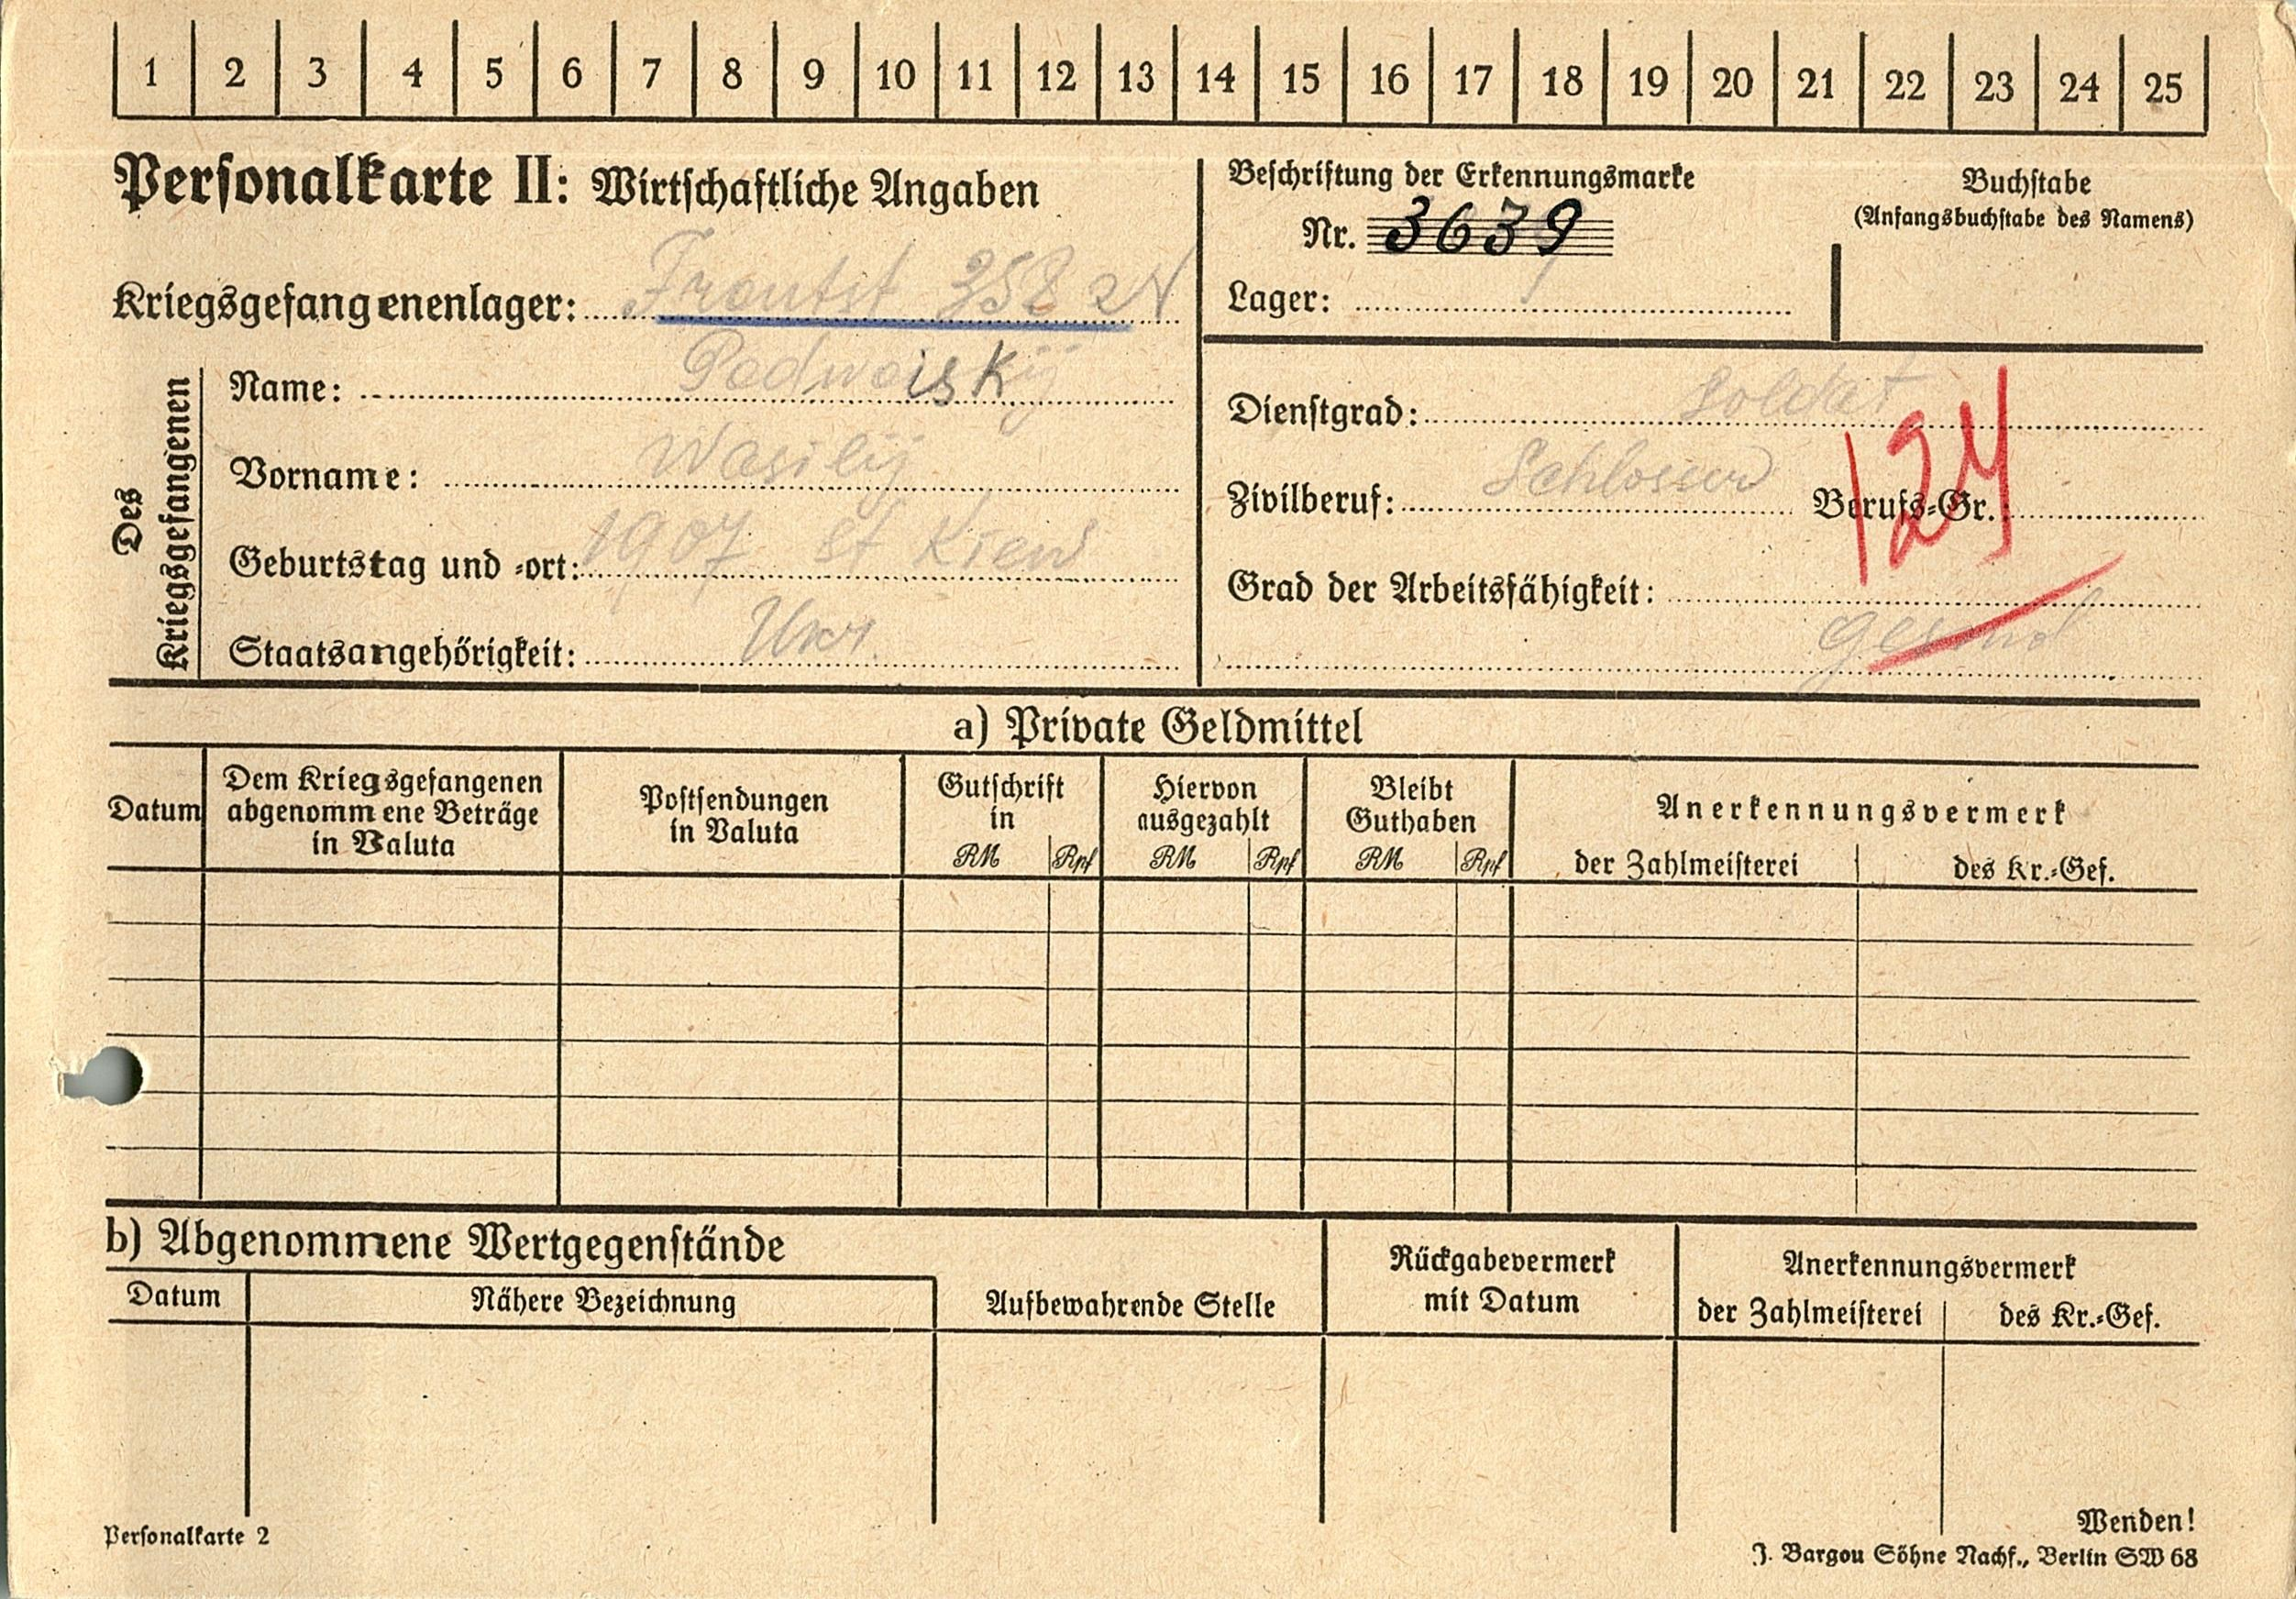 1 2 3 4 5 6 7 8 9 10 11 12 13 14 15 16 17 18 19 20 21 22 23 24 25
Personalkarte II: Wirtschaftliche Angaben
Beschriftung der Erkennungsmarke
Nr. 3639
Lager:
Buchstabe
(Anfangsbuchstabe des Namens)
Kriegsgefangenenlager: Frontst 358
Des Kriegsgefangenen
Name: Podwoiskij
Vorname: Wasilij
Geburtstag und -ort: 1907 st Kiew
Staatsangehörigkeit: Ukr.
Dienstgrad: Soldat
Zivilberuf: Schlosser Berufs-Gr.: 124
Grad der Arbeitsfähigkeit:
gesund
a) Private Geldmittel
Datum
Dem Kriegsgefangenen
abgenommene Beträge
in Valuta
Postsendungen
in Valuta
Gutschrift
in
RM Rpf
Hiervon
ausgezahlt
RM Rpf
Bleibt
Guthaben
RM Rpf
Anerkennungsvermerk
der Zahlmeisterei des Kr.-Gef.
b) Abgenommene Wertgegenstände
Datum Nähere Bezeichnung
Aufbewahrende Stelle
Rückgabevermerk
mit Datum
Anerkennungsvermerk
der Zahlmeisterei des Kr.-Gef.
Personalkarte 2
Wenden!
J. Bargou Söhne Nachf., Berlin SW 68